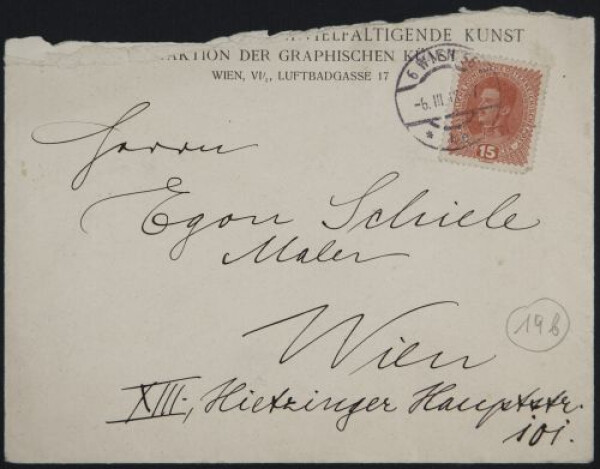 VIELFÄLTIGENDE KUNST
AKTION DER GRAPHISCHEN
WIEN, VI/1, LUFTBADGASSE 17
6 WIEN
-6. III.
15
Herrn
Egon Schiele
Maler
Wien
XIII., Hietzinger Hauptstr.
101.
19b